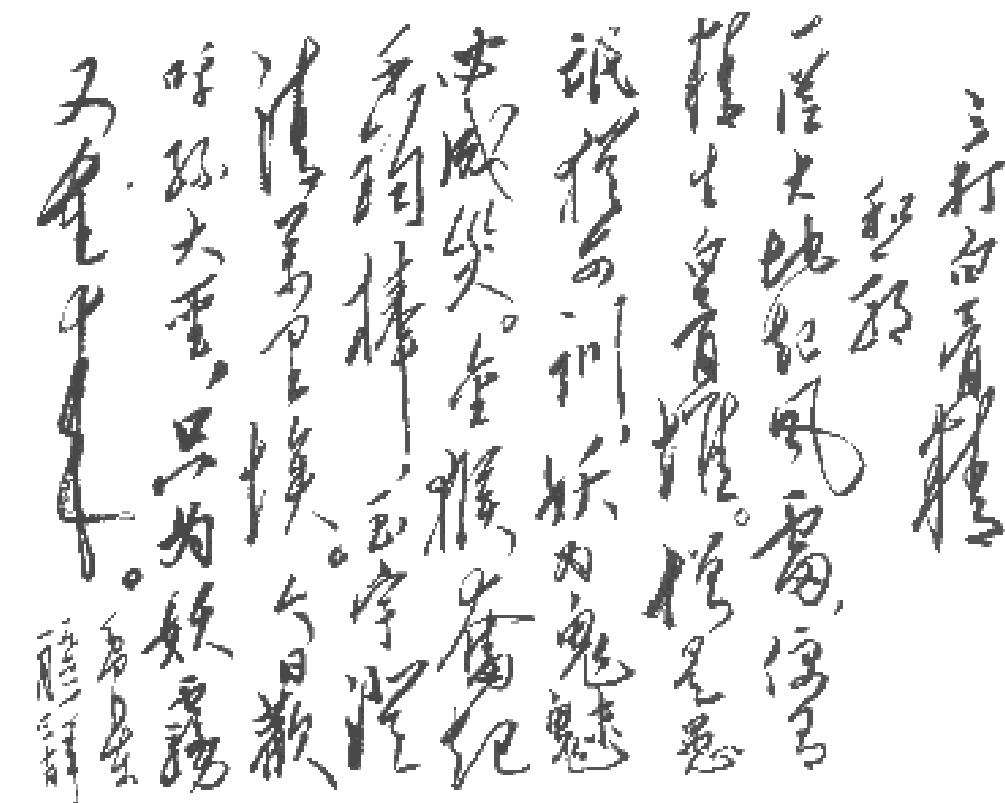 三打白骨精
和郭
一從大地起風雷，便有
精生白骨堆。僧是愚
氓猶可訓，妖為鬼蜮
必成災。金猴奮起
千鈞棒，玉宇澄
清萬里埃。今日歡
呼孫大聖，只為妖霧
又重來。
毛澤東
一九六一年